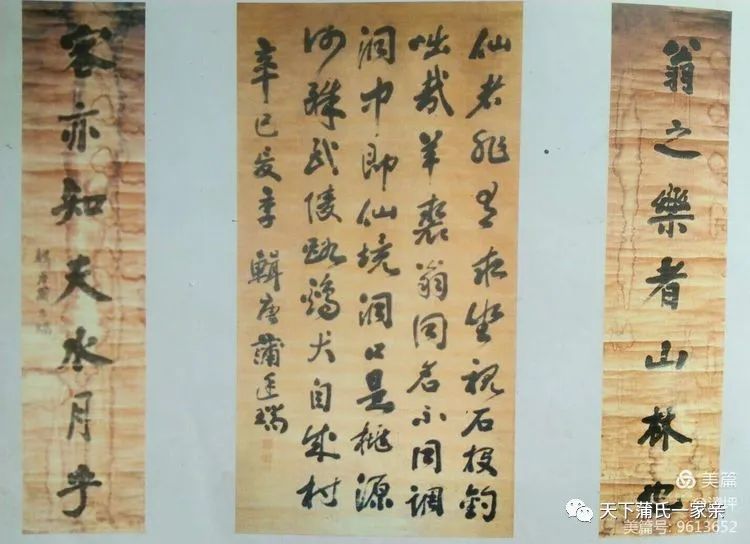 翁之樂者山林也
仙者非有求坐視石投釣
咄哉羊裘翁同名不同調
洞中即仙境洞口是桃源
何殊武陵路鷄犬自成村
辛巳夏季 輯唐蒲廷瑞
客亦知夫水月乎
美篇
天下蒲氏一家亲
美篇号: 9613652